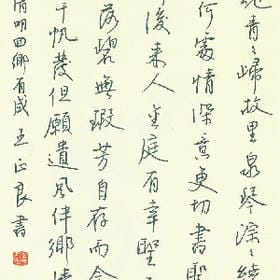 青々歸故里泉琴淙々繞
何處情深意更切書聖
後來人金庭有幸
落碧無瑕芳自存而今
千帆發但願遺風伴鄉情
清明回鄉有感 王正良書